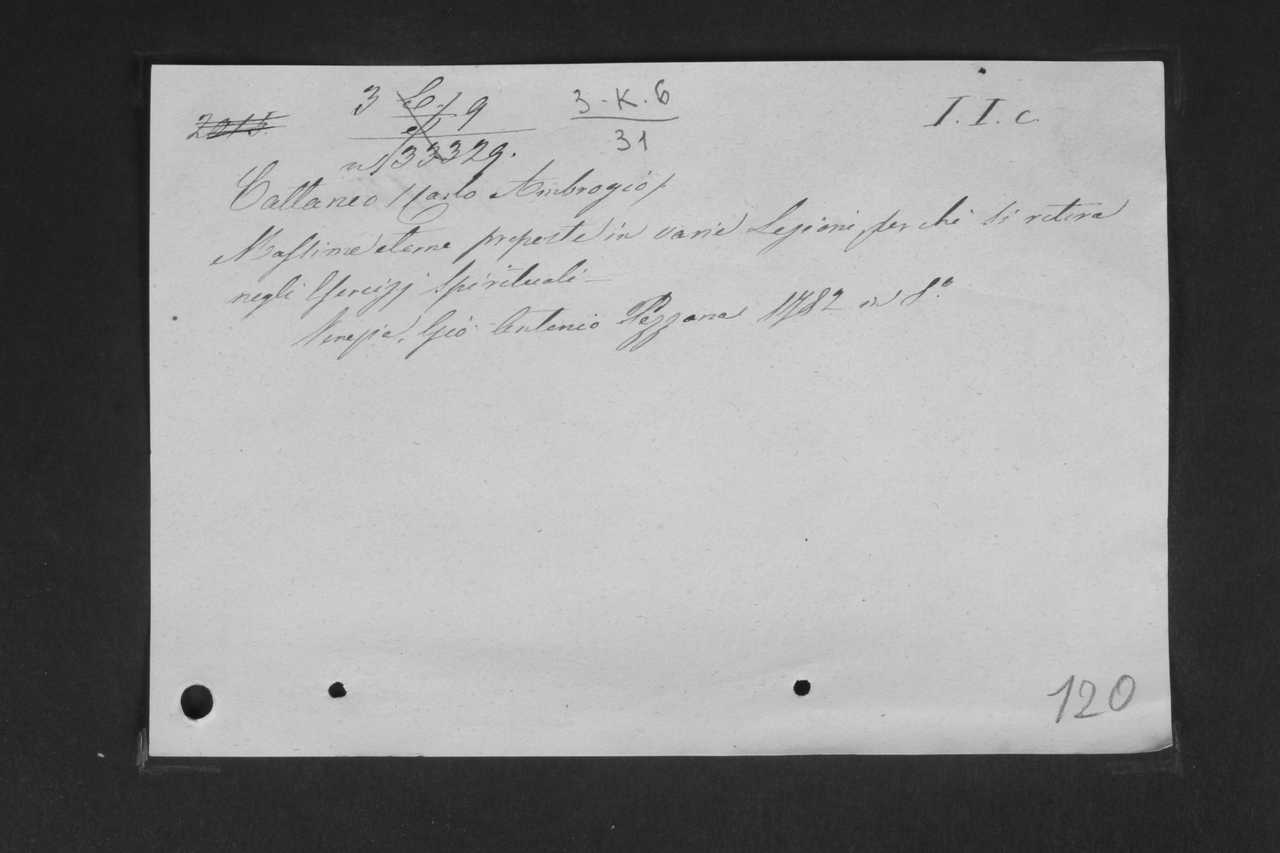 2015.
3 C. 1 9
3-K.6
31
I. I. c.
n. 133329.
Cattaneo (Carlo Ambrogio)
Massime eterne proposte in varie Lezioni, per chi si ritira
negli Esercizj Spirituali—
Venezia, Gio Antonio Pezzana 1782 in 8.°
120